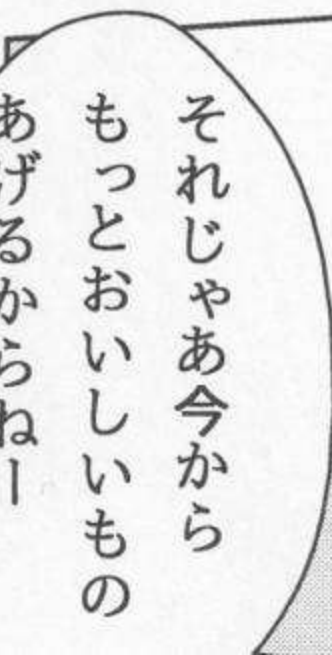 それじゃあ今から
もっとおいしいもの
あげるからねー